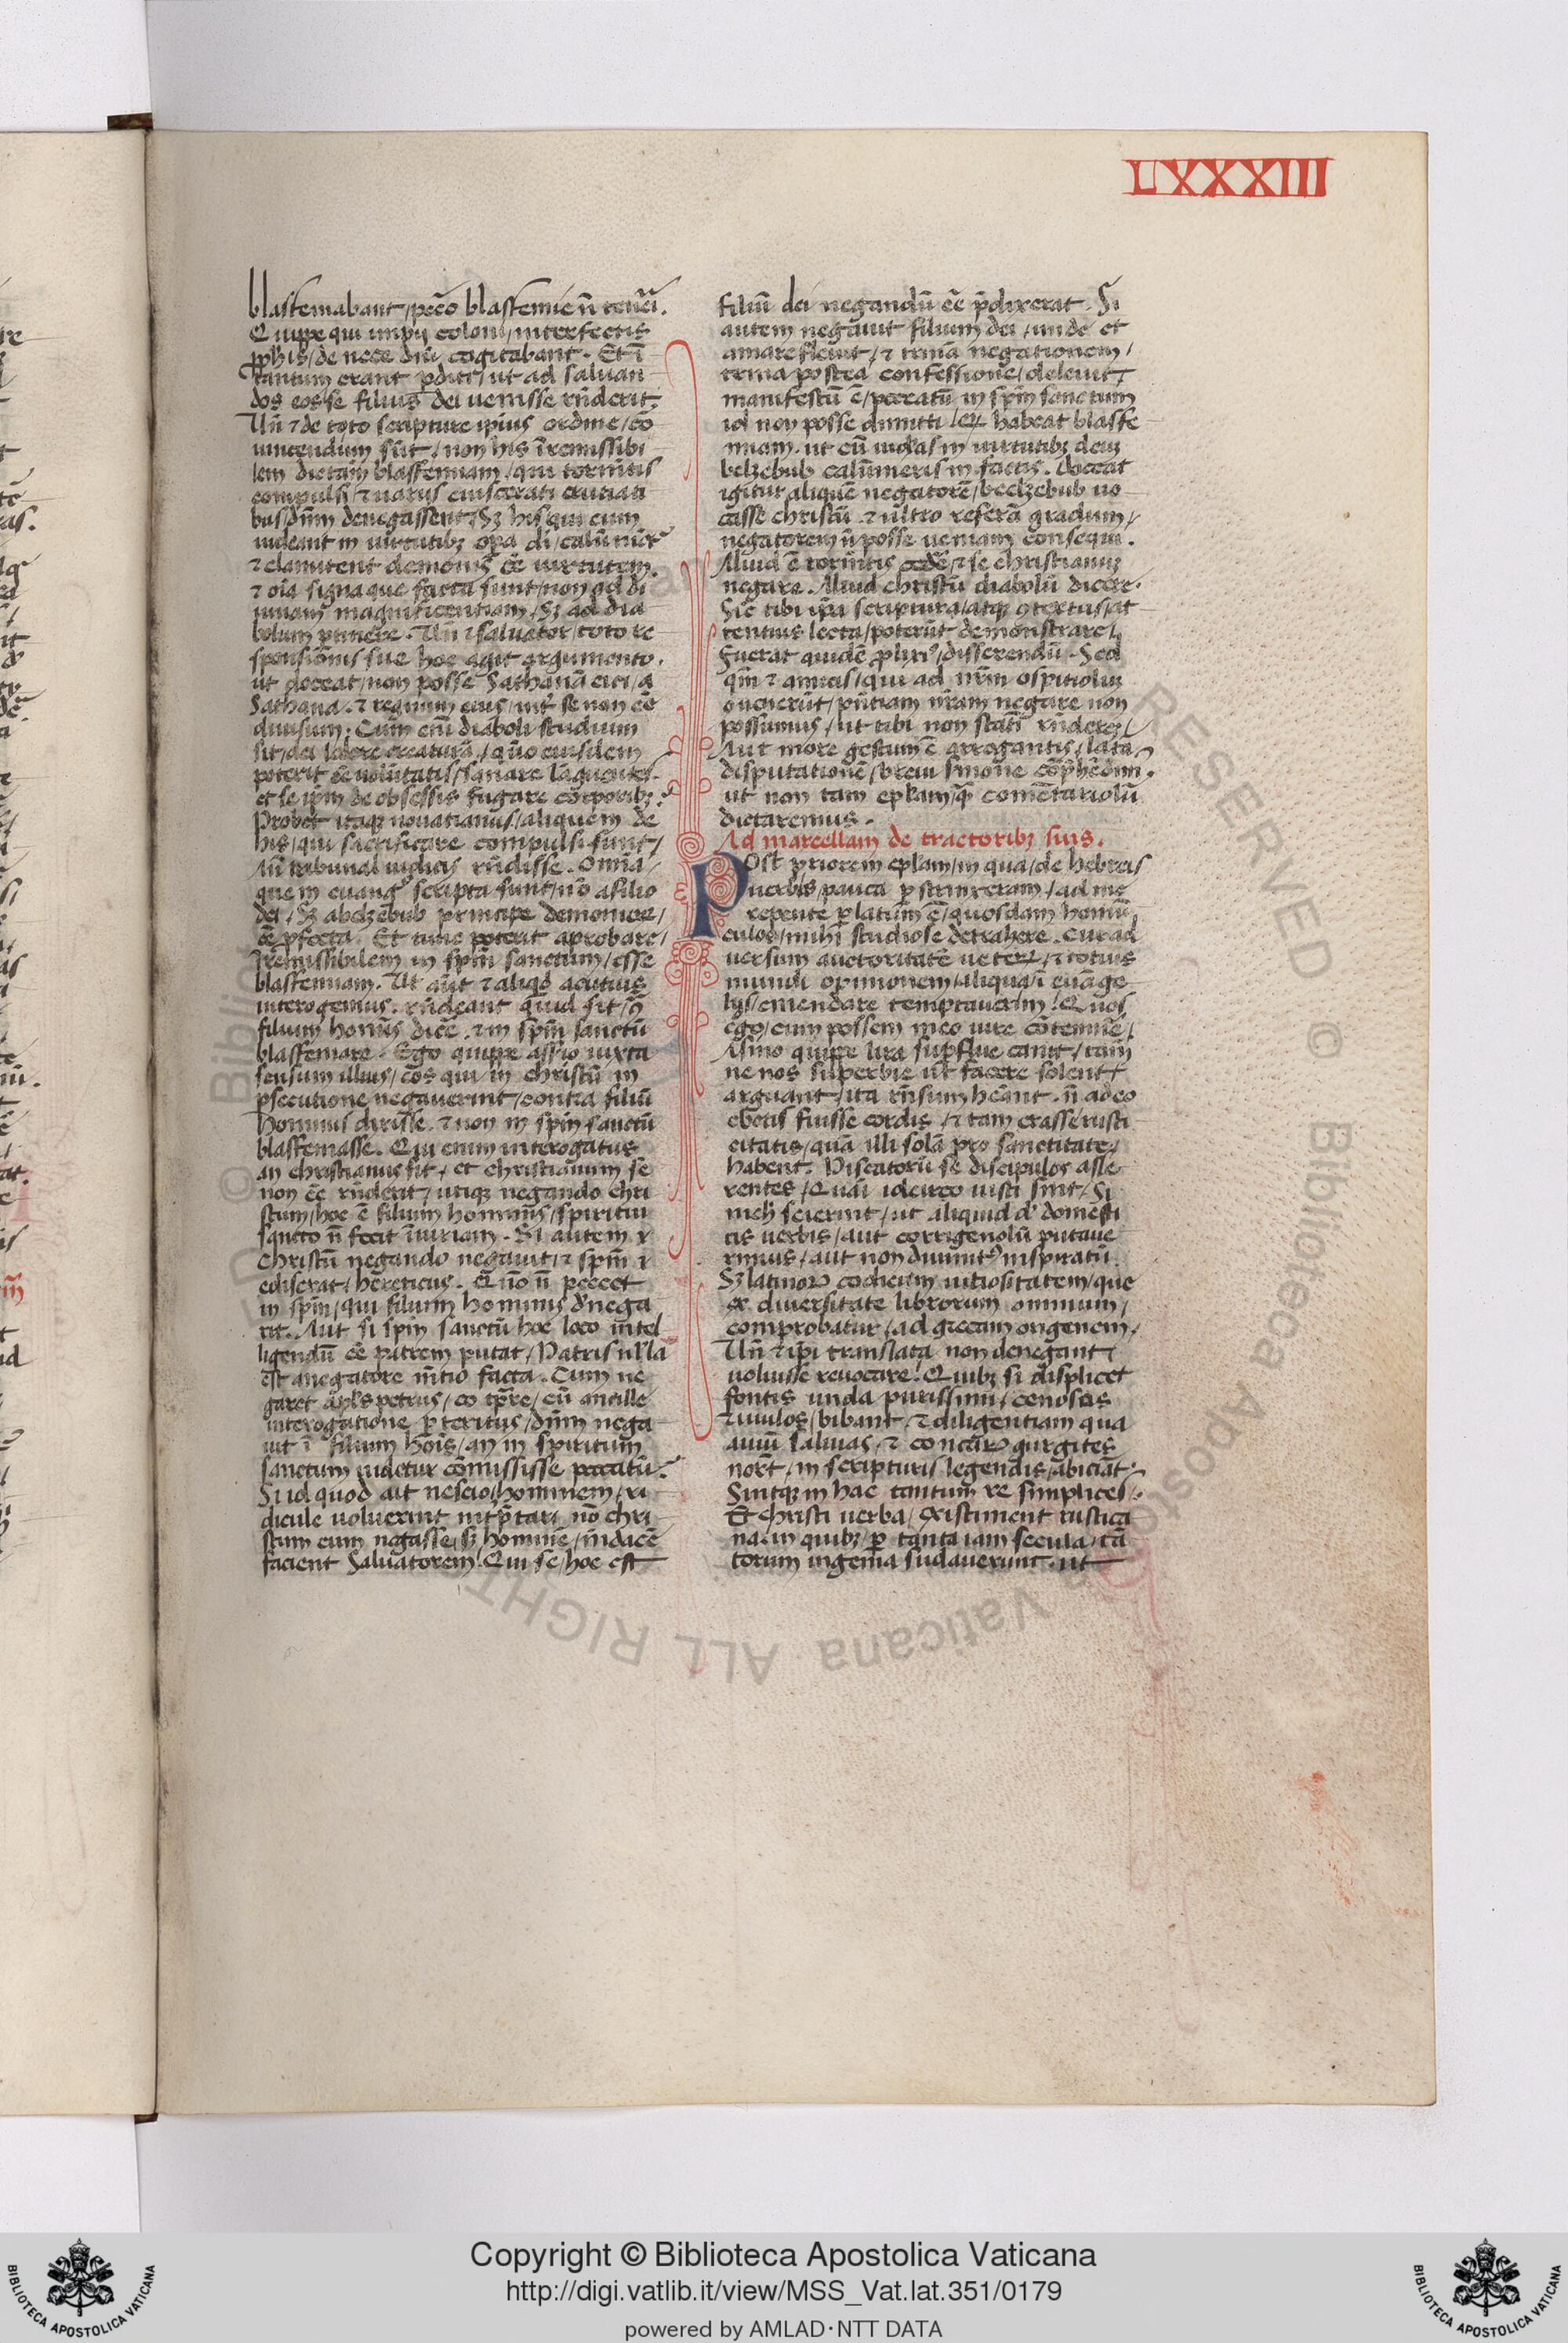 LXXXIIII
blasfemabant / pctō blasfemie n̄ tenēri.
Quippe qui impij coloni / interfectis
p̱phis / de nece dn̄i cogitabant. Et ī
tantum erant p̱diti / ut ad saluan
dos eos se filius dei uenisse rn̄derit.
Un̄ ⁊ de toto scripture ip̄ius ordine / cō
uincendum sūt / non his īremissibi
lem dictam blasfemiam / qui tormētis
compulsi / ⁊ uarijs euiscerati cruciati
bus / dn̄m denegassent / Sꝫ his qui cum
uideant in uirtutibꝫ opa di / calūniēt̄
⁊ clamitent demonis ēē uirtutem.
⁊ oīa signa que facta sunt / non ad di
uinam magnificentiam / Sꝫ ad dia
bolum ptinere. Un̄ ⁊ saluator / toto re
sponsionis sue hoc agit argumento.
ut doceat / non posse Sathanā eici / a
Sathana. ⁊ regnum eius / int̄ se non ēē
diuisum. Cum eni diaboli studium
sit / dei ledere creaturā / quō eiusdem
poterit ēē uolūtatis / sanare lāguentes.
et se ip̄m de obsessis fugare corporibꝫ.
Probet itaqꝫ nouatianus / aliquem de
his / qui sacrificare compulsi sunt /
An̄ tribunal iudicis rn̄disse. Omnia
que in euangᵒ scripta sunt / nō a filio
dei / Sꝫ abelzebub principe demonioꝝ /
ēē p̱fecta. Et tunc poterit aprobare /
Iremissibilem in spm̄ sanctum / esse
blasfemiam. Ut aūt ⁊ aliqd̄ acutius
interogemus. rn̄deant quid sit / 9̄
filium homīs dicē. ⁊ in spm̄ sanctū
blasfemare. Ego quippe assero iuxta
sensum illius / eos qui in christū in
p̱secutione negauerint / contra filiū
hominis dixisse. ⁊ non in spm̄ sanctū
blasfemasse. Qui enim interogatus
an christianus sit / et christianum se
non ēē rn̄derit / utiqꝫ negando chri
stum / hoc ē filium hominis / spiritui
sancto n̄ fecit iniuriam. Si autem ⁊
christū negando negauit / ⁊ spm̄
ediserat / hereticus. Quō n̄ peccet
in spm̄ / qui filium hominis d̓nega
rit. Aut si spm̄ sanctū hoc loco intel
ligendū ēē patrem putat / Patris nl̄la
est anegatore mētio facta. Cum ne
garet apl̄s petrus / eo tp̄re / cū ancille
interogatione p̱teritus / dn̄m nega
uit ī filium hoīs / an in spiritum
sanctum uidetur cōmississe peccatū.
Si id quod ait nescio / hominem / ri
dicule uoluerint intp̄tari / nō chri
stum eum negasse / sꝫ hominē / m̄dacē
facient Saluatorem / Qui se / hoc est
filiū dei negandū ēē p̄dixerat. Si
autem negauit filium dei / unde et
amare fleuit / ⁊ trinā negationem /
trina postea confessione / deleuit /
manifestū ē / peccatū in spm̄ sanctum
id non posse dimitti / qd̄ habeat blasfe
miam. ut cū uideas in uirtutibꝫ deū
belzebub calūnieris in factis. Doceat
igitur aliquē negatorē / beelzebub uo
casse christū. ⁊ ultro referā gradum /
negatorem n̄ posse ueniam consequi.
Aliud ē tormētis cedē / ⁊ se christianum
negare. Aliud christū diabolū dicere.
Sic tibi ip̄a scriptura / atqꝫ 9textus / at
tentius lecta / poterūt demonstrare /
Fuerat quidē p̱lixiᵒ / disserendū. Sed
qm̄ ⁊ amicis / qui ad nr̄m ospitiolum
9uenerūt / pn̄tiam nr̄am negare non
possumus / ut tibi non stati rn̄derem /
Aut more gestum ē arrogantis / lata
disputationē / breui sm̄one cōp̱hēdim.
ut non tam epl̄am / q̄ comētariolū
dictaremus.
Ad marcellam de tractoribꝫ suis.
Post priorem epl̄am / in qua / de hebreis
uerbis / pauca p̱strinxeram / ad me
repente p̱latum ē / quosdam homū
culos / mihi studiose detrahere. cur ad
uersum auctoritatē ueterꝝ / ⁊ totius
mundi opinionem / aliqua ī euāge
lijs / emendare temptauerim / Quos
ego / cum possem meo iure cōtemnē /
Asino quippe lira sup̄flue canit / tam̄
ne nos superbie ut facere solent /
arguant / ita rn̄sum hēant. n̄ adeo
ebetis fuisse cordis / ⁊ tam crasse rusti
citatis / quā illi solā pro sanctitate /
habent. Piscatorū se discipulos asse
rentes / Quasi idcirco iusti sint / Si
nichꝫ scierint / ut aliquid d̓ domesti
cis uerbis / aut corrigendū putaue
rimus / aut non diuinitᵒ inspiratū.
Sꝫ latinoꝝ codicum uitiositatem / que
ex diuersitate librorum omnium /
comprobatur / ad grecam originem /
Un̄ ⁊ ip̄i translata non denegant /
uoluisse reuocare. Quibꝫ si displicet
fontis unda purissimi / cenosos
riuulos / bibant. ⁊ diligentiam qua
auiū saluas / ⁊ concarꝝ gurgites
nort̄ / in scripturis legendis / abiciāt.
Sintqꝫ in hac tantum re simplices.
Et christi uerba / existiment rustica
na. in quibꝫ / p̱ tanta iam secula / tā
torum ingenia sudauerunt. ut
Copyright © Biblioteca Apostolica Vaticana
http://digi.vatlib.it/view/MSS_Vat.lat.351/0179
powered by AMLAD·NTT DATA
BIBLIOTECA APOSTOLICA VATICANA
BIBLIOTECA APOSTOLICA VATICANA